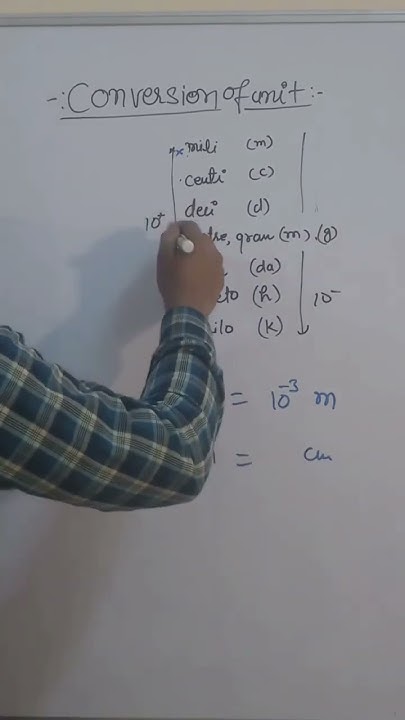 -:Conversion of unit:-
mili (m)
centi (c)
deci (d)
10⁺
gram (m).(g)
(da)
(h) 10⁻
(k)
= 10⁻³ m
= cm